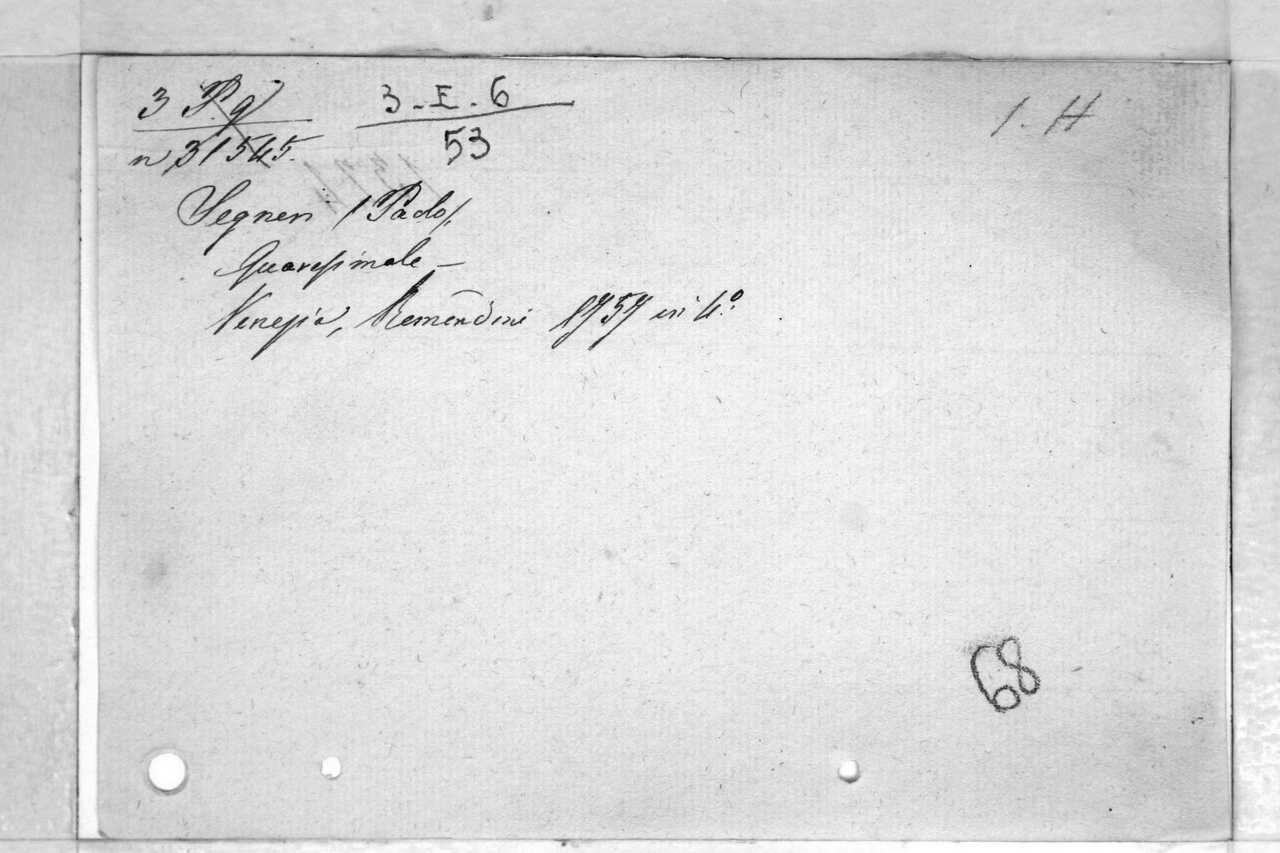 3 P. q 3 - E - 6
n 31545. 53
1 - H
Segneri (Paolo).
Quaresimale —
Venezia, Remondini 1757 in 4.º
68